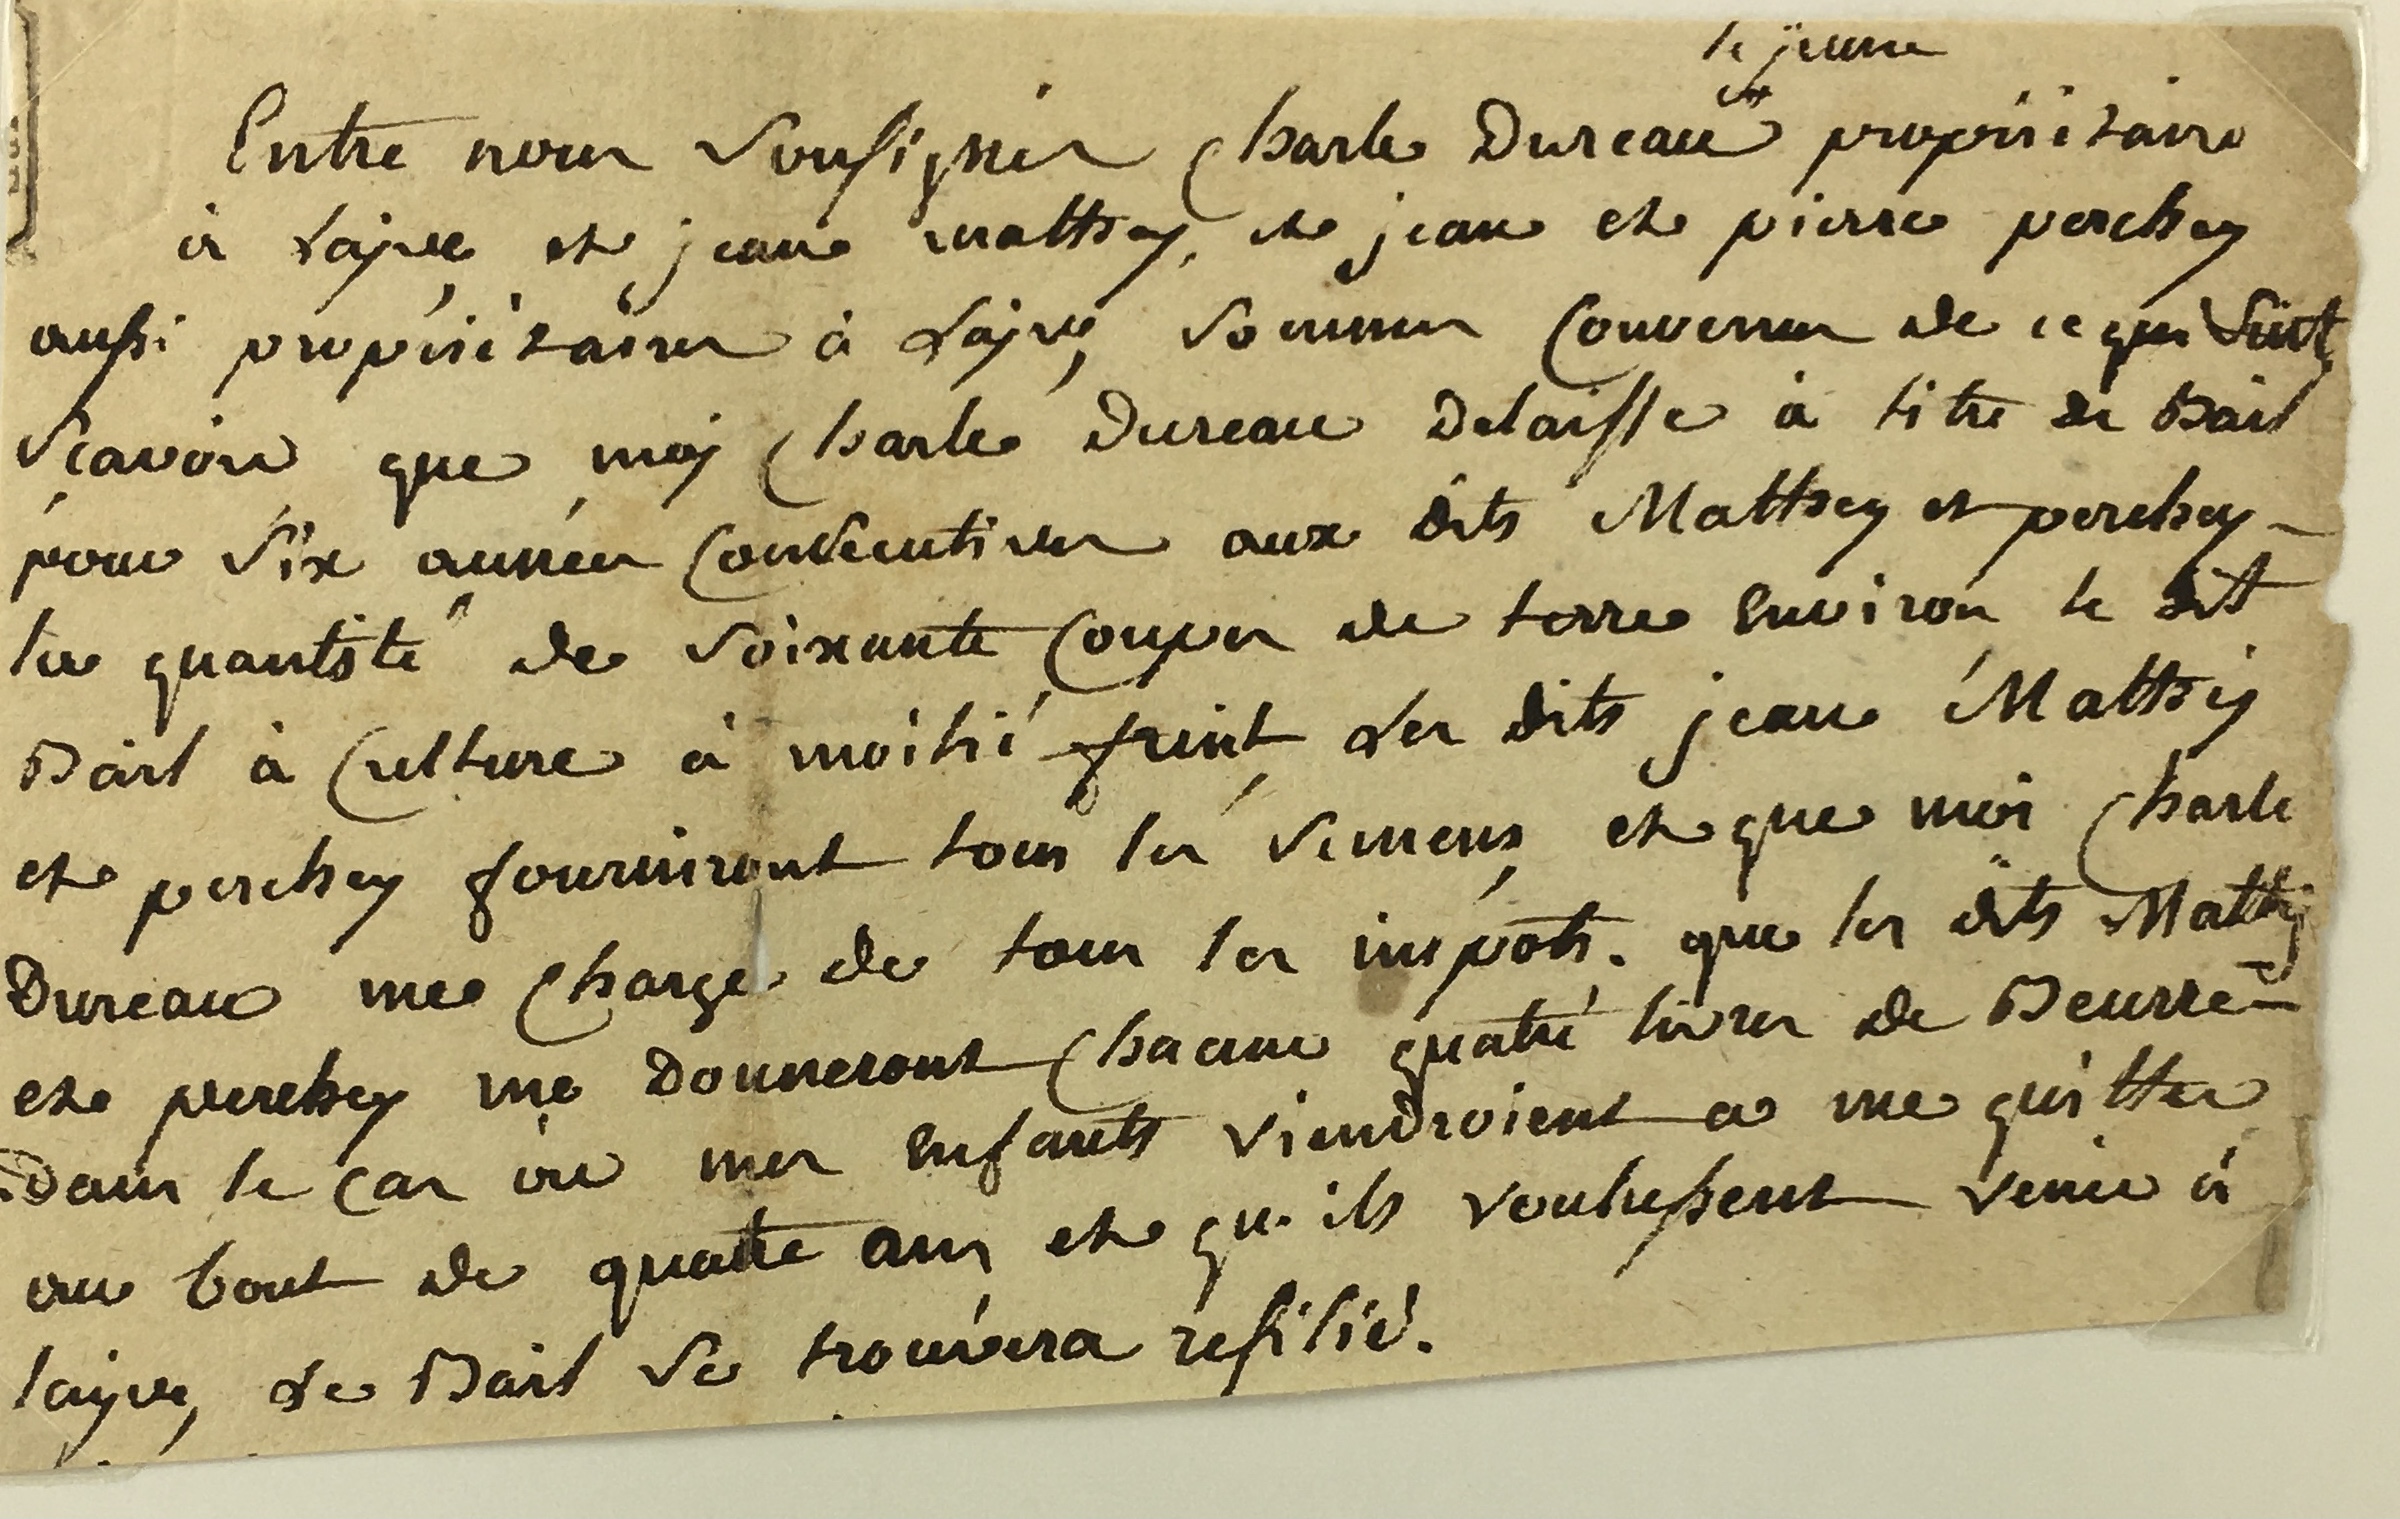 le jeune
Entre nous Soussignés Charle Dureau propriétaire
à Layve et jean matthey, et jean et pierre perchey
aussi propriétaires à Layve, Sommes Convenus de ce qui Suit,
Sçavoir que moy Charle Dureau Delaisse à titre de Bail
pour Six années Consécutives aux dits Matthey et perchey -
la quantité de Soixante Coupes de terre Environ le dit
Bail à Culture à moitié fruit Les dits jean Matthey
et perchey fourniront tous les Semens, et que moi Charle
Dureau me Charge de tous les impôts. que les dits Matthey
et perchey me Donneront Chacun quatre livres de Beurre -
Dans le Cas où mes Enfants viendroient a me quitter
au bout de quatre ans, et qu'ils voulussent venir à
layve, Le Bail Se trouvera résilié.